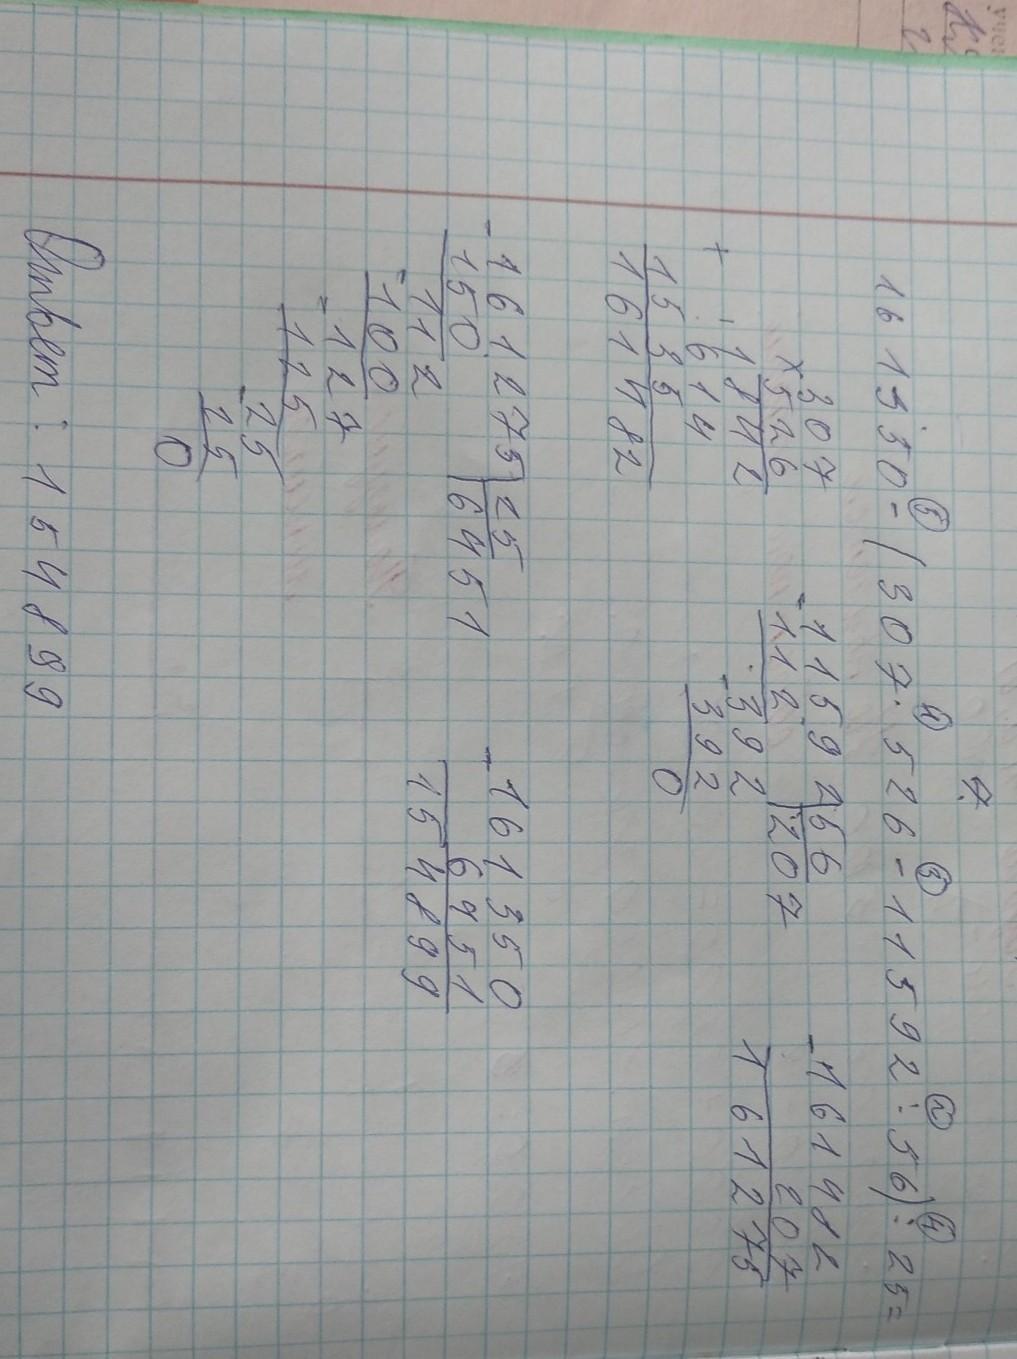 7.
161350-(307·526-11592:56):25=
307
×526
1842
+ 614
1535
161482
-11592|56
112 |207
-392
392
0
-161482
207
161275
-161275|25
150 |6451
-112
100
-127
125
-25
25
0
-161350
6451
154899
Ответ: 154899